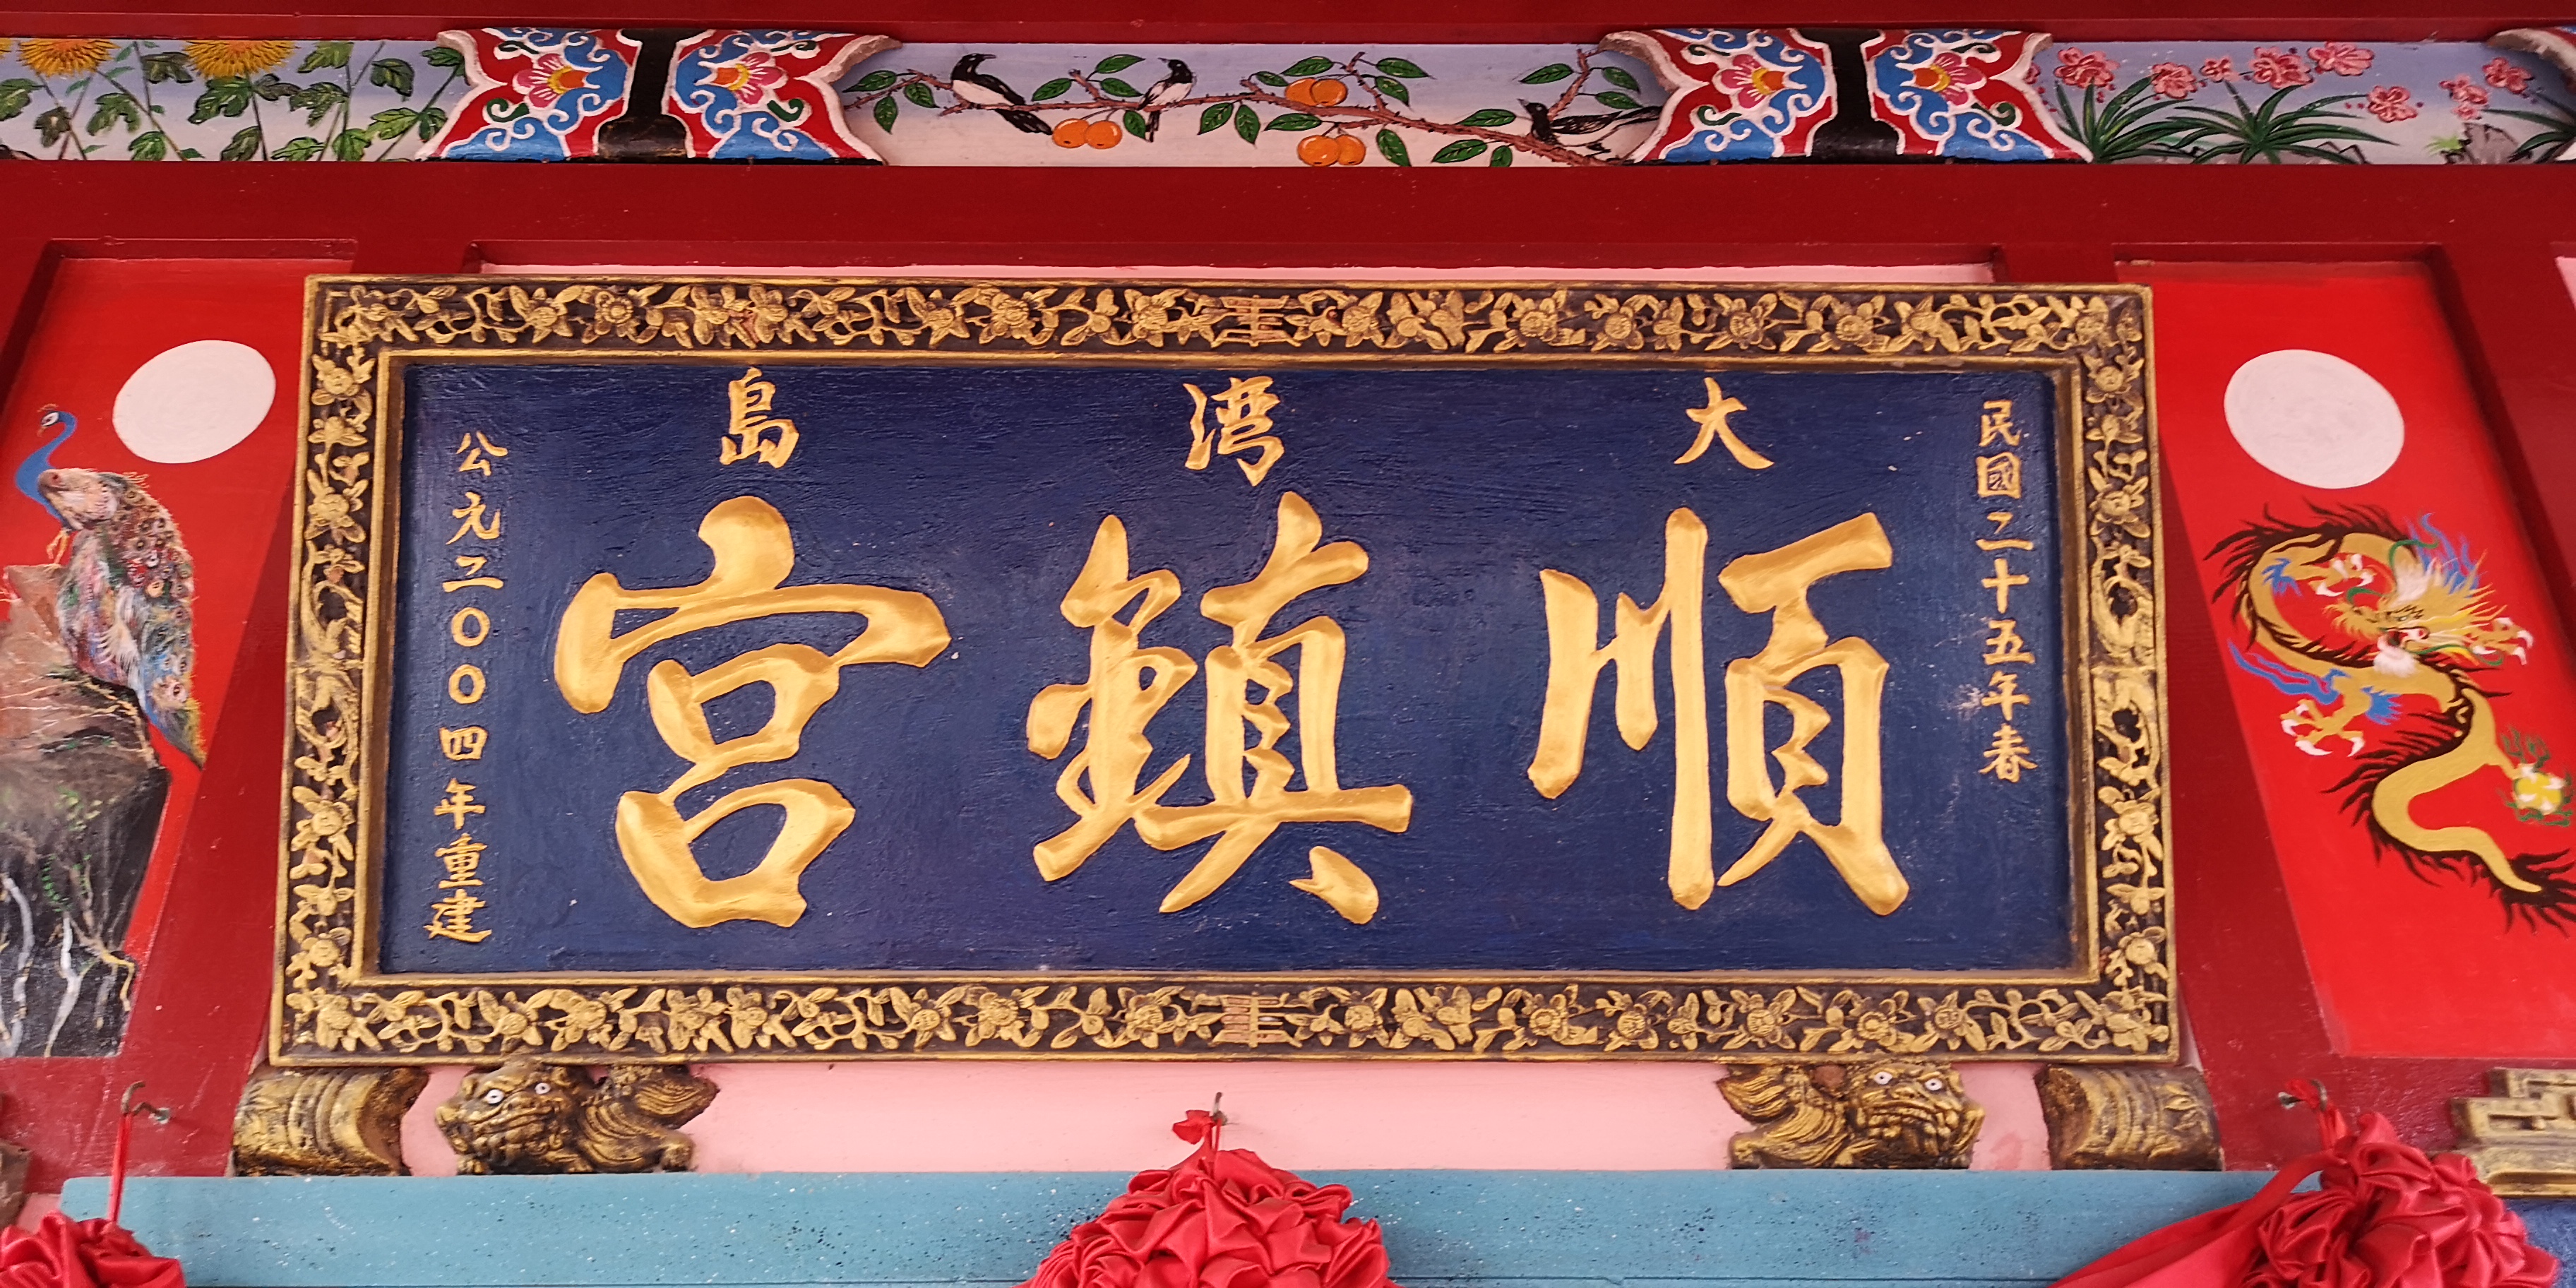 民國二十五年春
大湾島
順鎮宮
公元二〇〇四年重建